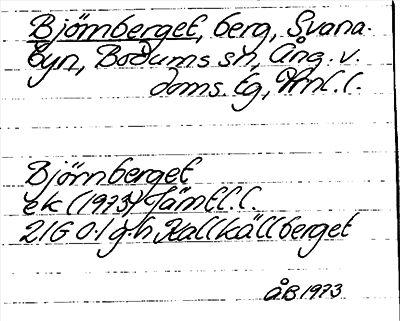 Björnberget, berg, Svana-
byn, Bodums sn, Ång. v.
doms. tg, Vrnl. l.
Björnberget
ek (1973) Jämtl. l.
21G 0-1 g-h Kallkällberget
ÅB 1973